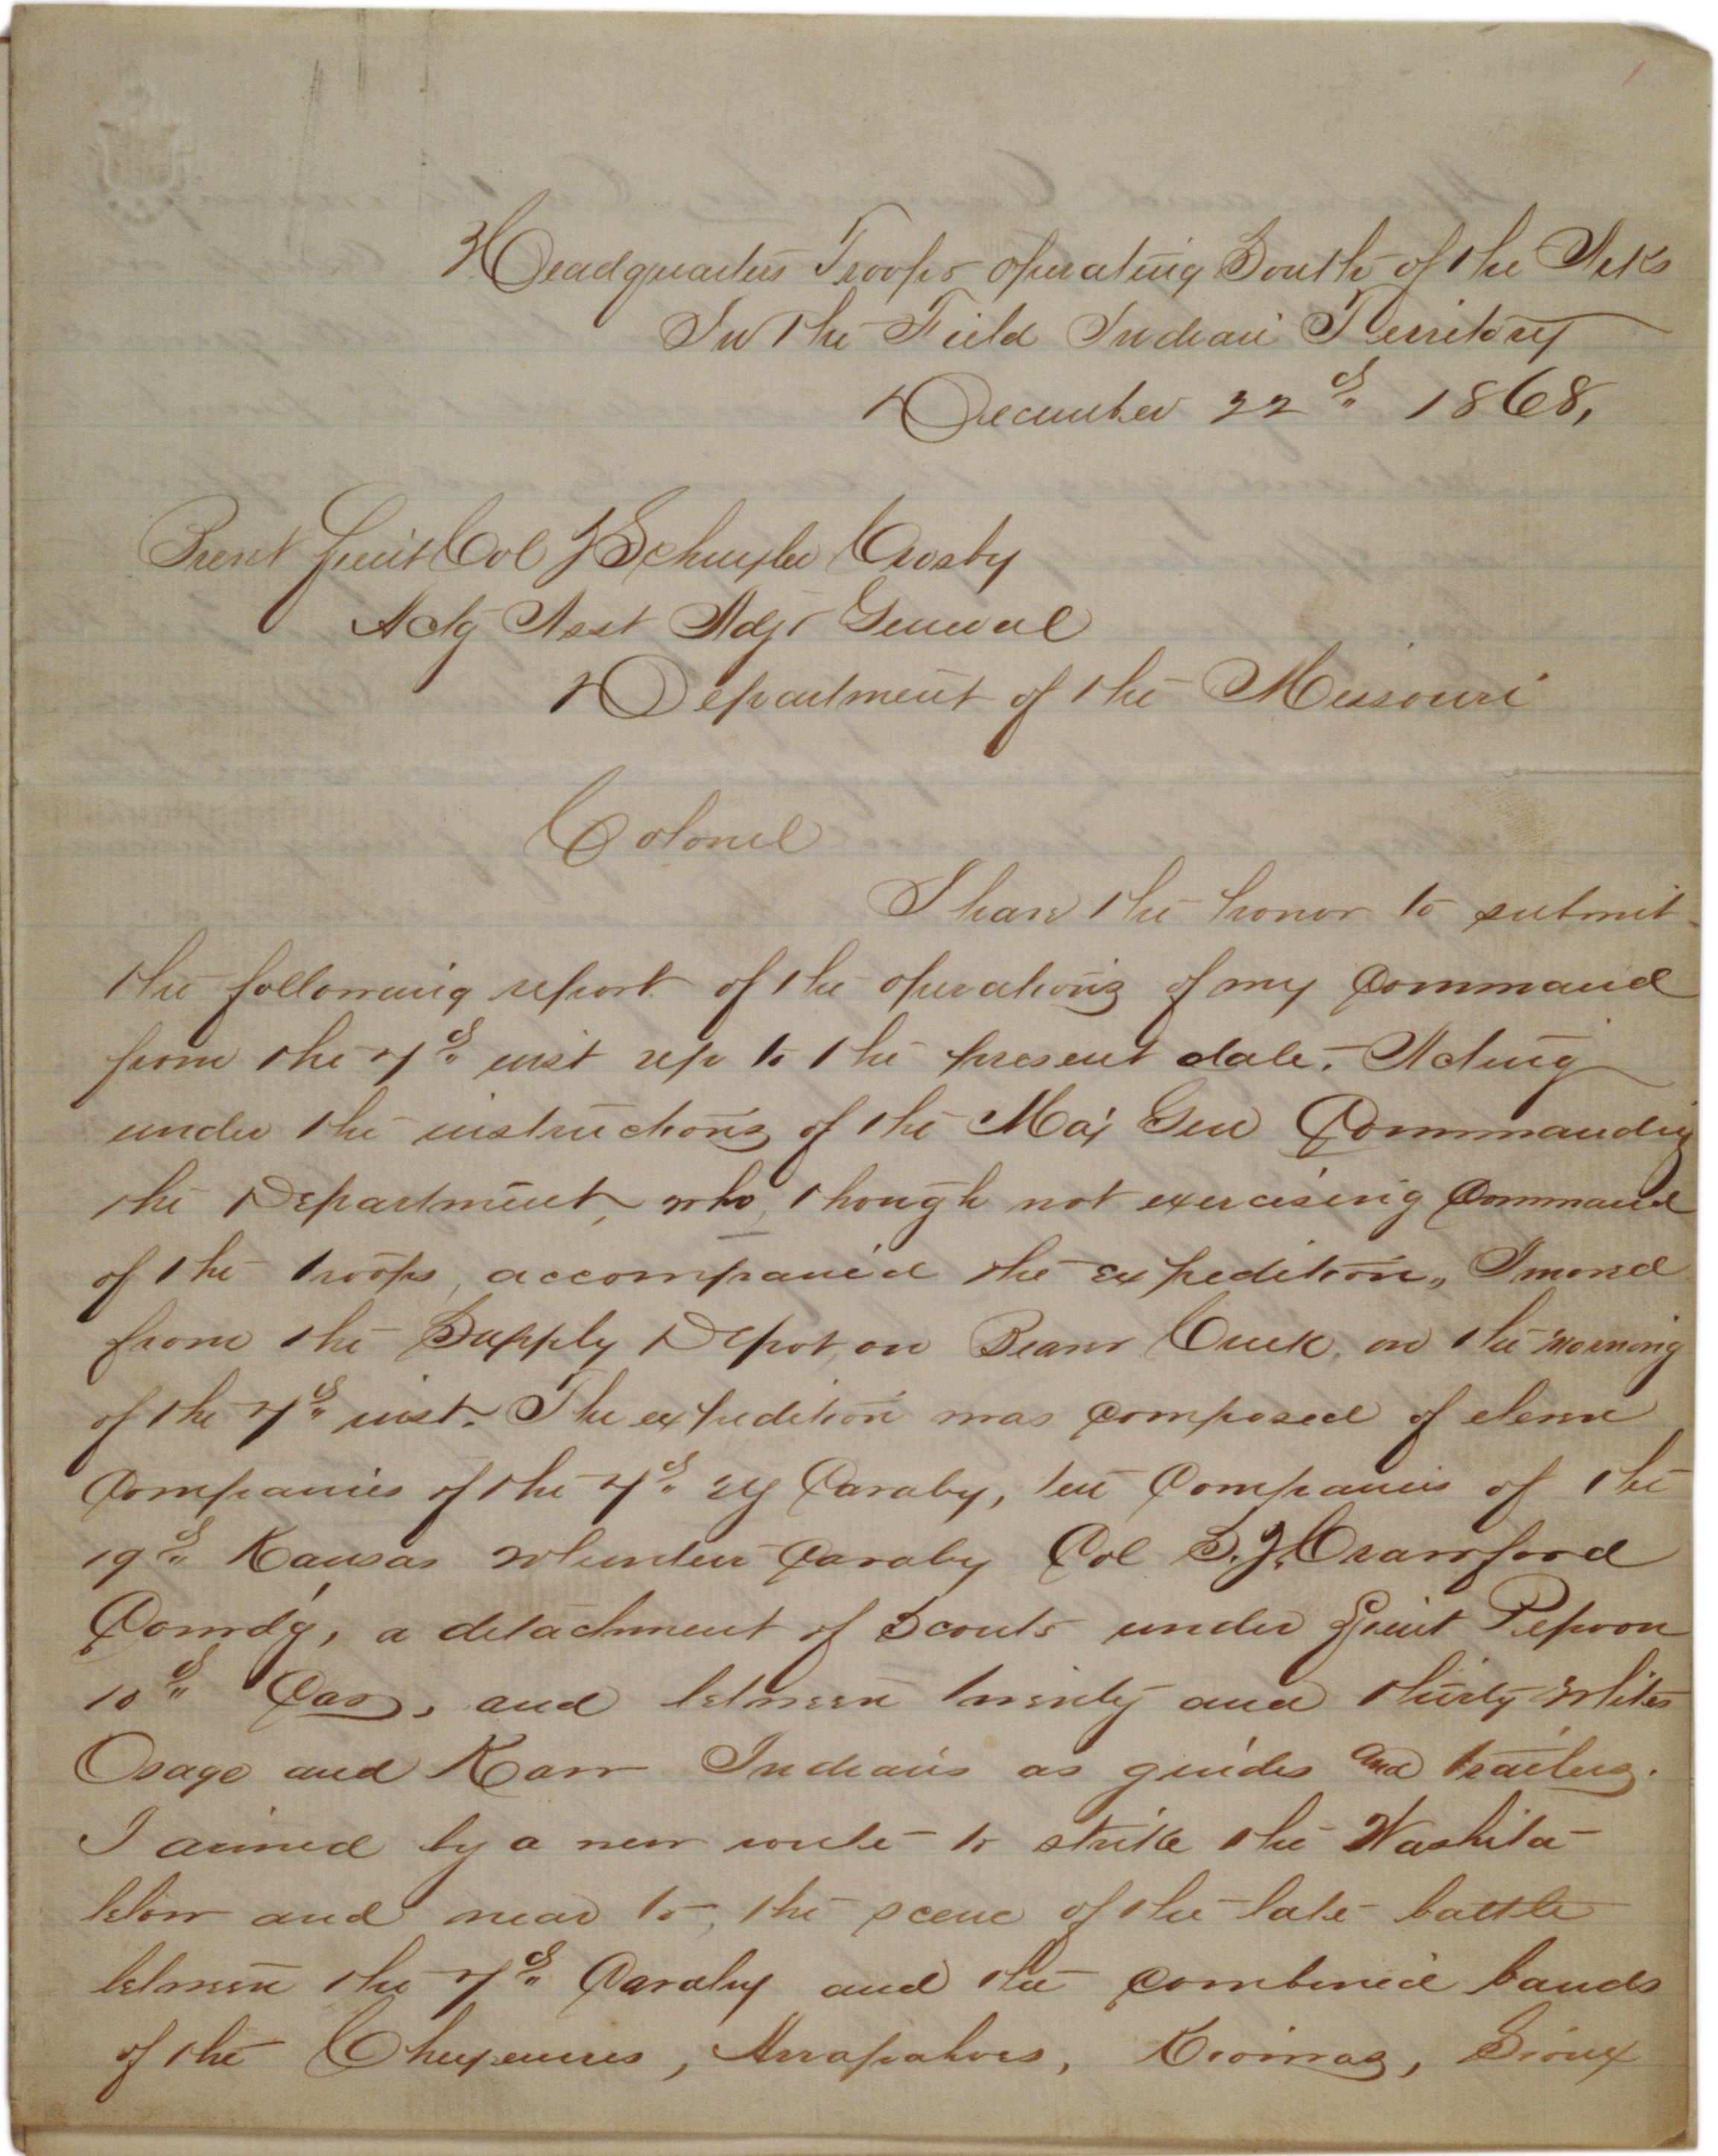 Headquarters Troops operating South of the Arks
In the Field Indian Territory
December 22d 1868,
Brevt Lieut Col J Schuyler Crosby
Actg Asst Adjt General
Department of the Missouri
Colonel
I have the honor to submit
the following report of the operations of my Command
from the 7th inst up to the present date. Acting
under the instructions of the Maj Gen Commanding
the Department, who, though not exercising Command
of the troops, accompanied the expedition, I moved
from the Supply Depot, on Beaver Creek, on the morning
of the 7th inst. The expedition was composed of eleven
Companies of the 7th Cavalry, ten Companies of the
19th Kansas Volunteer Cavalry Col S. J. Crawford
Comdg, a detachment of Scouts under Lieut Pepoon
10th Cav, and between twenty and thirty Whites
Osage and Kaw Indians as guides and trailers.
I aimed by a new route to strike the Washita
below and near to, the scene of the late battle
between the 7th Cavalry and the combined bands
of the Cheyennes, Arrapahoes, Kiowas, Sioux